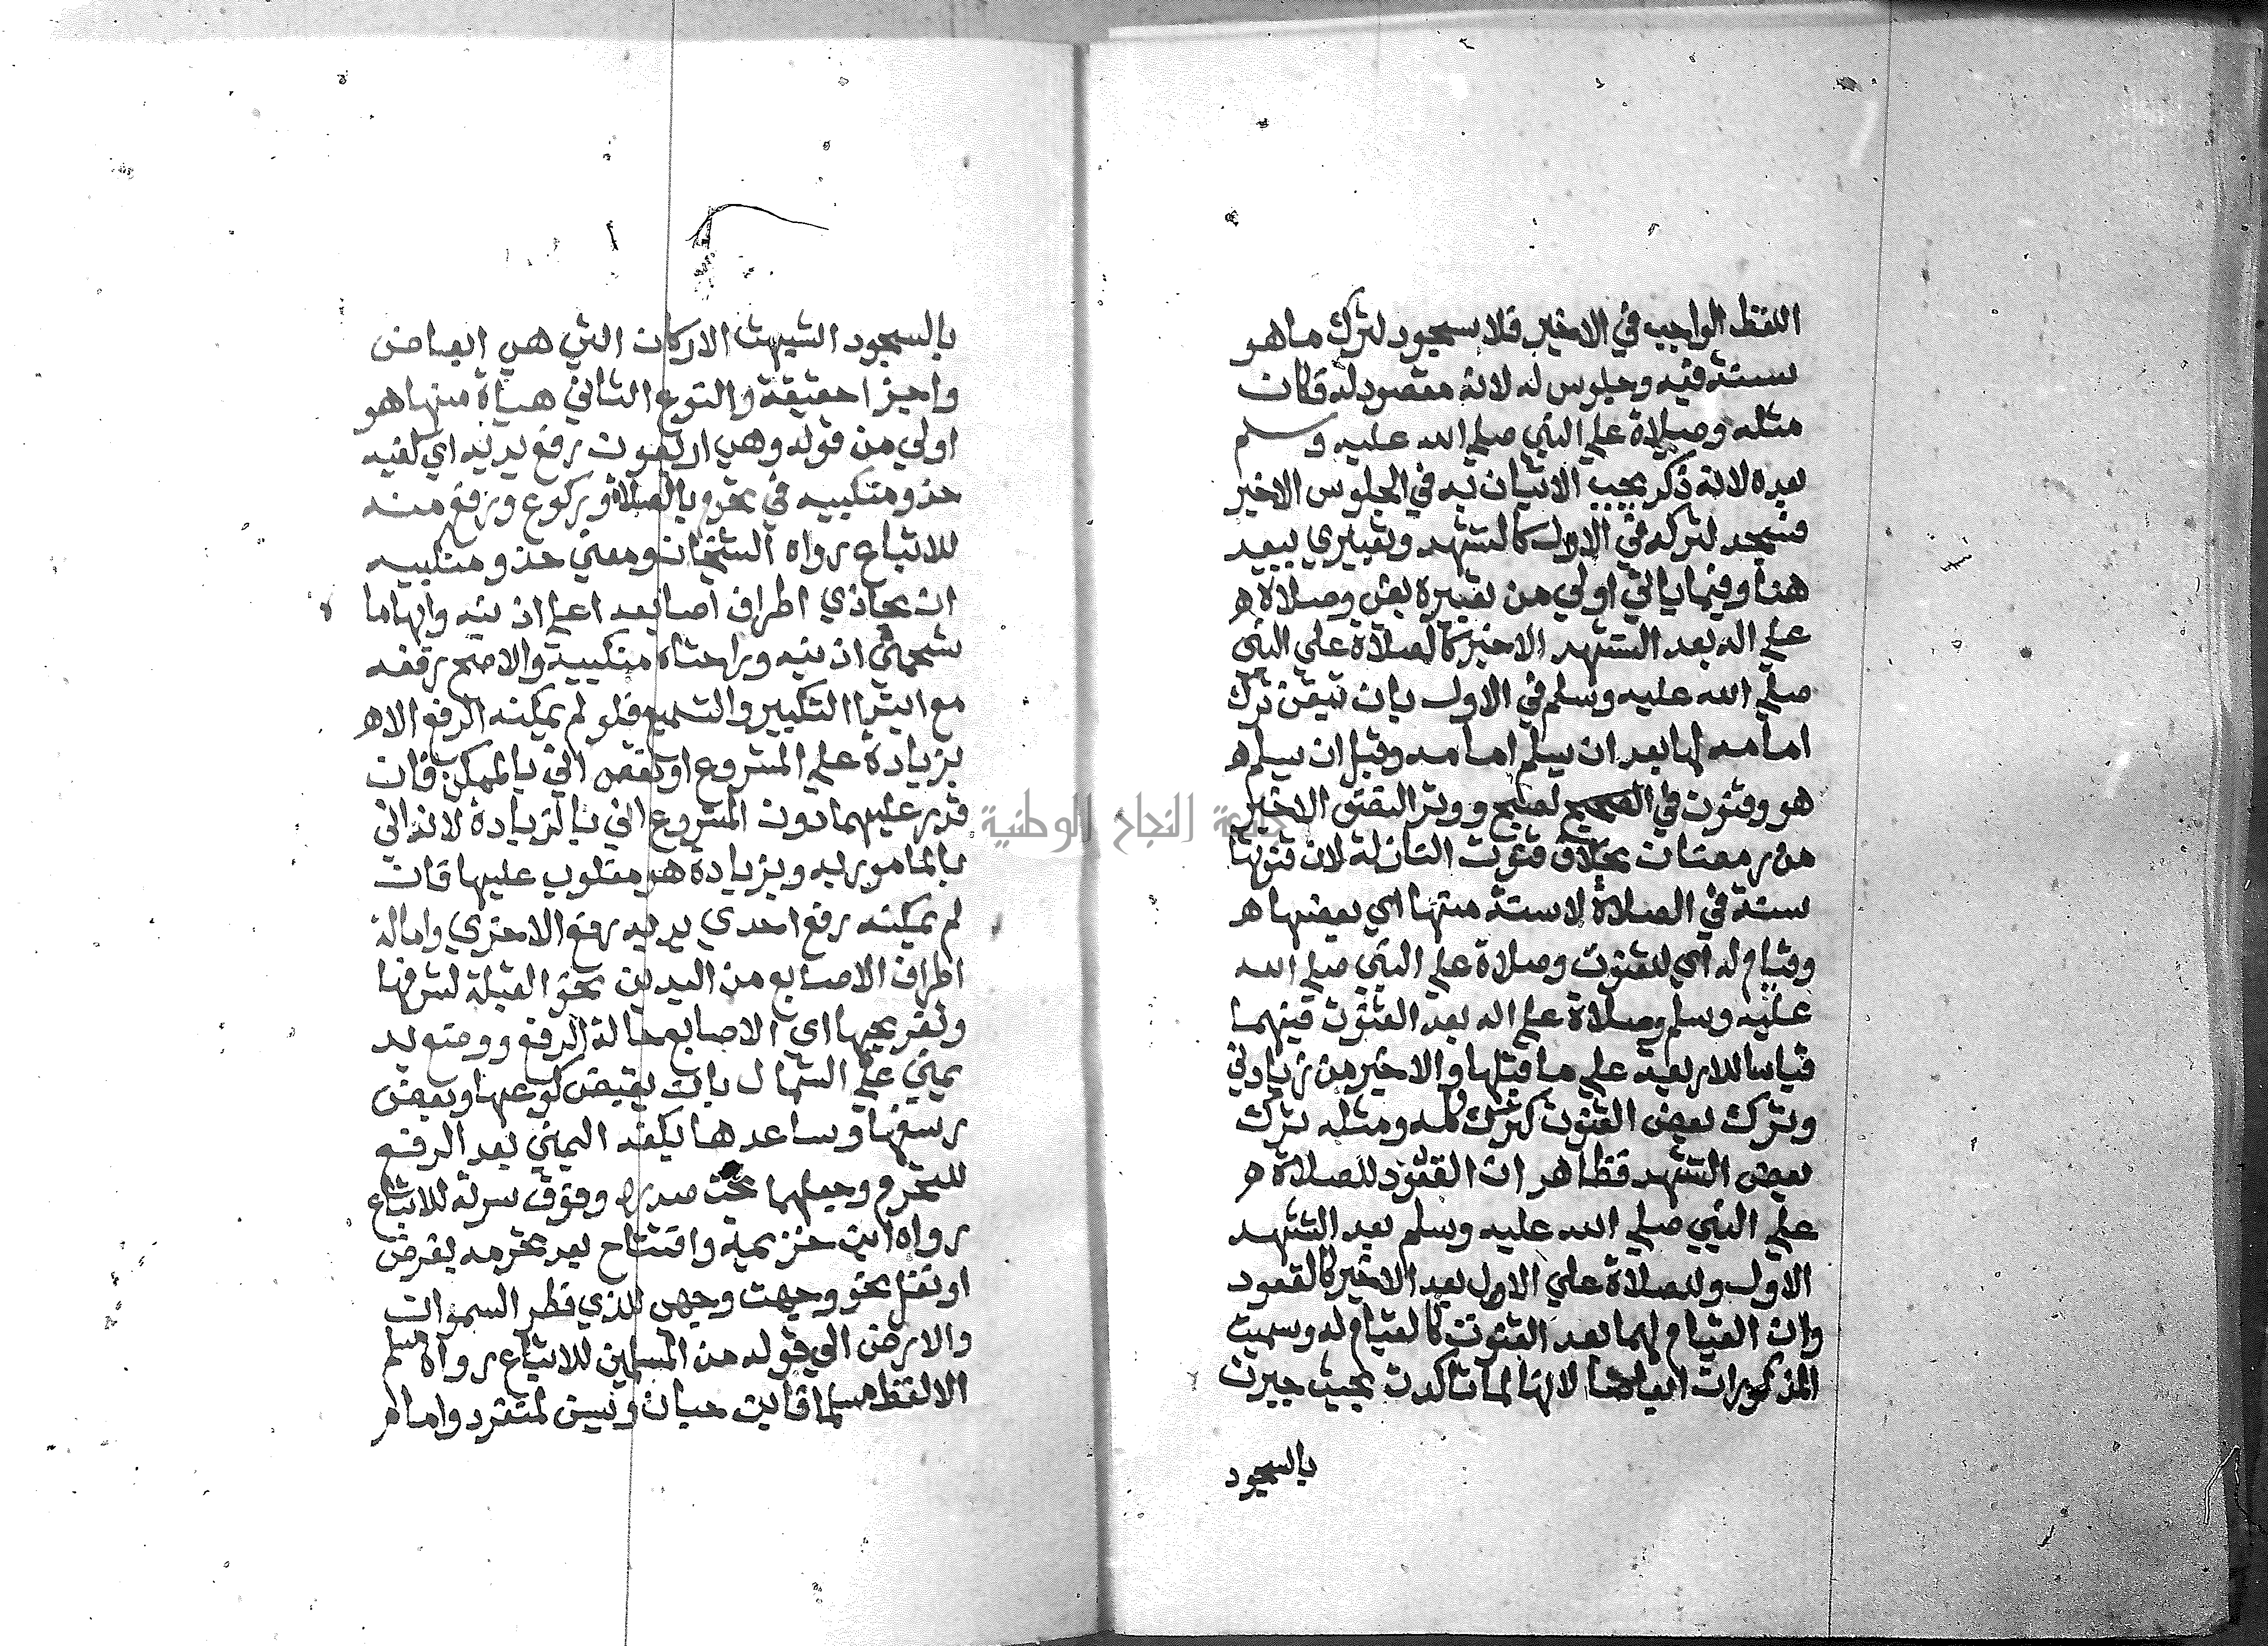 اللفظ الواجب في الاخير فلا سجود لترك ما هو
سنة فيه وجلوس له لانه مقصود له فكان
مثله وصلاة علي النبي صلي الله عليه وسلم
بعده لانه ذكر يجب الاتيان به في الجلوس الاخير
فيسجد لتركه في الاول كالتشهد وتعبيري ببعد
هنا وفيما ياتي اولي من تعبيره بفي وصلاة
علي اله بعد التشهد الاخير كالصلاة علي النبي
صلي الله عليه وسلم في الاول بان تيقن ترك
امامه لها بعد ان يسلم امامه وقبل ان يسلم
هو وقنوت في الصبح ووتر النصف الاخير
من رمضان بخلاف قنوت النازلة لان قنوتها
سنة في الصلاة لا سنة منها اي بعضها
وقيام له اي للقنوت وصلاة علي النبي صلي الله
عليه وسلم وصلاة علي اله بعد القنوت فيهما
قياسا للاربعة علي ما قبلها والاخير من زيادتي
وترك بعض القنوت كترك كله ومثله ترك
بعض التشهد فظاهر ان القعود للصلاة
علي النبي صلي الله عليه وسلم بعد التشهد
الاول وللصلاة علي الال بعد الاخير كالقعود
وان القيام لهما بعد القنوت كالقيام له وسميت
المذكورات ابعاضا لانها لما تاكدت بحيث جبرت
بالسجود
بالسجود اشبهت الاركان التي هي ابعاض
واجزا حقيقة والنوع الثاني هياة منها هو
اولي من قوله وهي اربعون رفع يديه اي كفيه
حذو منكبيه في تحرم بالصلاة وركوع ورفع منه
للاتباع رواه الشيخان ومعني حذو منكبيه
ان يحاذي اطراف اصابعه اعلا اذنيه وابهاما
شحمتي اذنيه وراحتاه منكبيه والاصح رفعه
مع ابتدا التكبير والتسميع فلو لم يمكنه الرفع الا
بزيادة علي المشروع او نقص اتي بالممكن فان
قدر عليهما دون المشروع اتي بالزيادة لانه اتي
بالمامور به وبزيادة هو مغلوب عليها فان
لم يمكنه رفع احدي يديه رفع الاخري وامالة
اطراف الاصابع من اليدين نحو القبلة لشرفها
وتفريجها اي الاصابع حالة الرفع ووضع يد
يمني علي الشمال بان يقبض كوعها وبعض
رسغها وساعدها بكفه اليمني بعد الرفع
للتحرم وجعلهما تحت صدره وفوق سرته للاتباع
رواه ابن خزيمة وافتتاح بعد تحرمه بفرض
او نفل نحو وجهت وجهي للذي فطر السموات
والارض الي قوله من المسلمين للاتباع رواه مسلم
الا لفظ مسلما فابن حبان وليس لمنفرد وامام
جامعة النجاح الوطنية